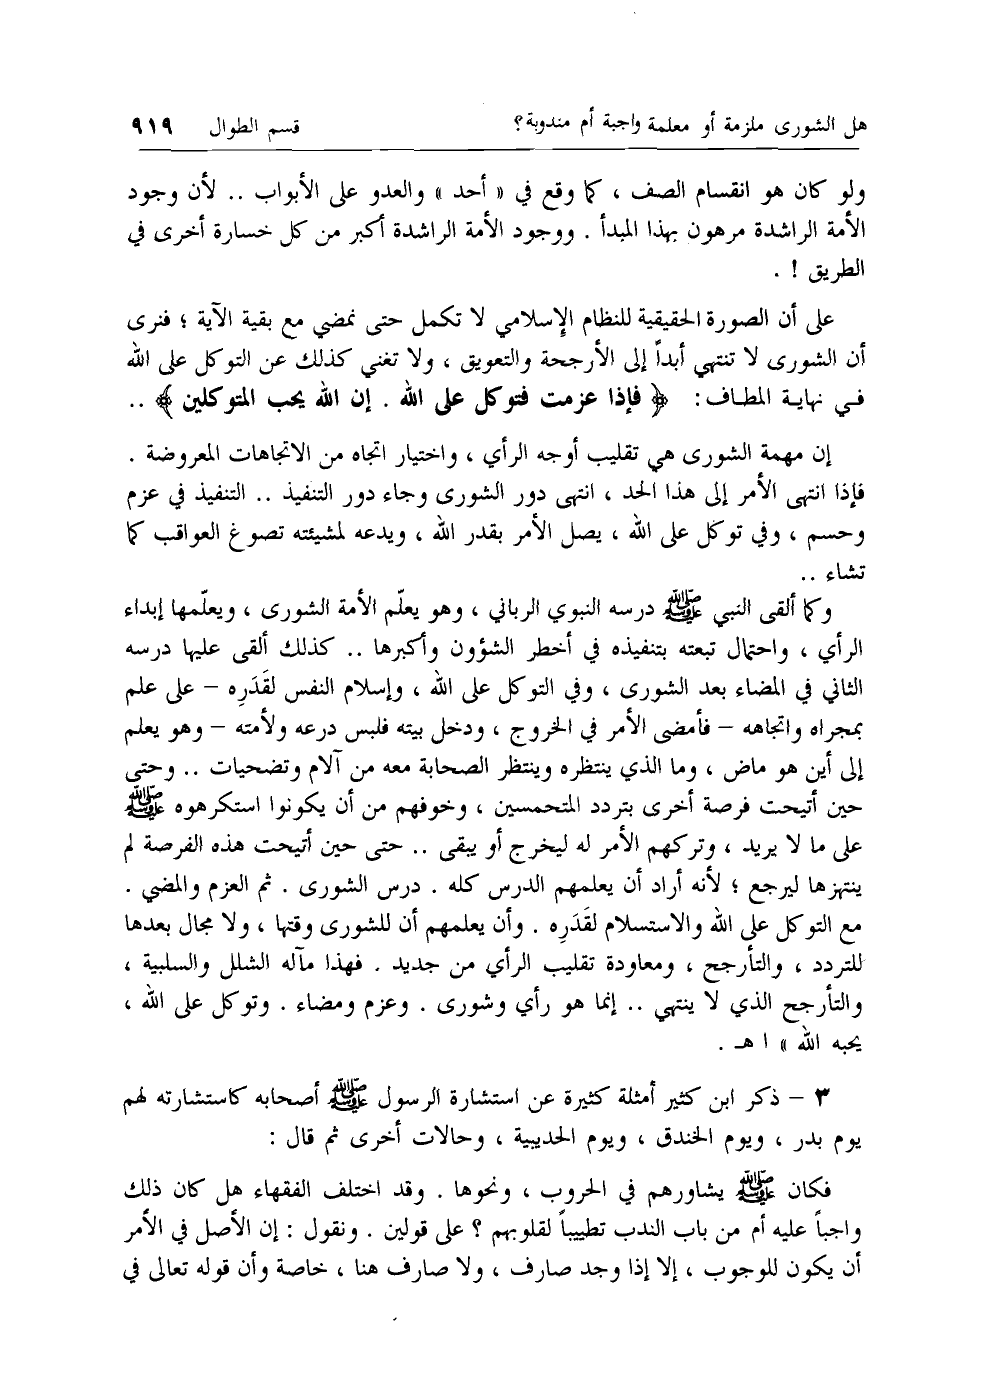 هل الشورى ملزمة أو معلمة واجبة أم مندوبة؟ قسم الطوال ٩١٩
ولو كان هو انقسام الصف ، كما وقع في « أحد » والعدو على الأبواب .. لأن وجود
الأمة الراشدة مرهون بهذا المبدأ . ووجود الأمة الراشدة أكبر من كل خسارة أخرى في
الطريق ! .
على أن الصورة الحقيقية للنظام الإسلامي لا تكمل حتى نمضي مع بقية الآية ؛ فنرى
أن الشورى لا تنتهي أبداً إلى الأرجحة والتعويق ، ولا تغني كذلك عن التوكل على الله
في نهاية المطاف : ﴿ فإذا عزمت فتوكل على الله . إن الله يحب المتوكلين ﴾ ..
إن مهمة الشورى هي تقليب أوجه الرأي ، واختيار اتجاه من الاتجاهات المعروضة .
فإذا انتهى الأمر إلى هذا الحد ، انتهى دور الشورى وجاء دور التنفيذ .. التنفيذ في عزم
وحسم ، وفي توكل على الله ، يصل الأمر بقدر الله ، ويدعه لمشيئته تصوغ العواقب كما
تشاء ..
وكما ألقى النبي ﷺ درسه النبوي الرباني ، وهو يعلّم الأمة الشورى ، ويعلّمها إبداء
الرأي ، واحتمال تبعته بتنفيذه في أخطر الشؤون وأكبرها .. كذلك ألقى عليها درسه
الثاني في المضاء بعد الشورى ، وفي التوكل على الله ، وإسلام النفس لقَدَرِه – على علم
بمجراه واتجاهه – فأمضى الأمر في الخروج ، ودخل بيته فلبس درعه ولأمته – وهو يعلم
إلى أين هو ماض ، وما الذي ينتظره وينتظر الصحابة معه من آلام وتضحيات .. وحتى
حين أتيحت فرصة أخرى بتردد المتحمسين ، وخوفهم من أن يكونوا استكرهوه ﷺ
على ما لا يريد ، وتركهم الأمر له ليخرج أو يبقى .. حتى حين أتيحت هذه الفرصة لم
ينتهزها ليرجع ؛ لأنه أراد أن يعلمهم الدرس كله . درس الشورى . ثم العزم والمضي .
مع التوكل على الله والاستسلام لقَدَرِه . وأن يعلمهم أن للشورى وقتها ، ولا مجال بعدها
للتردد ، والتأرجح ، ومعاودة تقليب الرأي من جديد . فهذا مآله الشلل والسلبية ،
والتأرجح الذي لا ينتهي .. إنما هو رأي وشورى . وعزم ومضاء . وتوكل على الله ،
يحبه الله » ا هـ .
٣ – ذكر ابن كثير أمثلة كثيرة عن استشارة الرسول ﷺ أصحابه كاستشارته لهم
يوم بدر ، ويوم الخندق ، ويوم الحديبية ، وحالات أخرى ثم قال :
فكان ﷺ يشاورهم في الحروب ، ونحوها . وقد اختلف الفقهاء هل كان ذلك
واجباً عليه أم من باب الندب تطييباً لقلوبهم ؟ على قولين . ونقول : إن الأصل في الأمر
أن يكون للوجوب ، إلا إذا وجد صارف ، ولا صارف هنا ، خاصة وأن قوله تعالى في